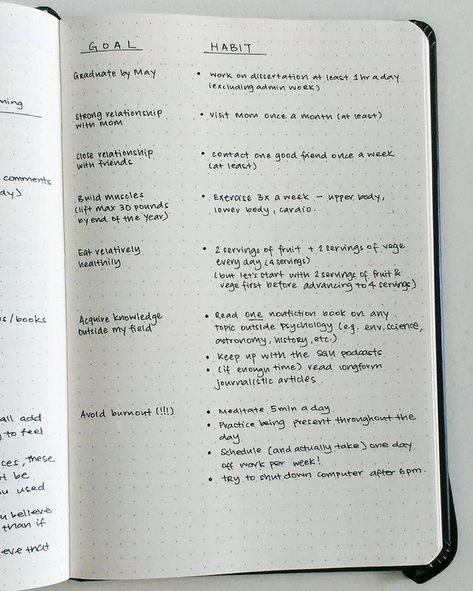 ming
comments
day)
s/books
all add
g to feel
ces, these
t be
u used
u believe
than if
eve that
GOAL HABIT
Graduate by May • work on dissertation at least 1hr a day
(excluding admin work)
Strong relationship • Visit Mom once a month (at least)
with Mom
Close relationship • contact one good friend once a week
with friends (at least)
Build muscles • Exercise 3x a week – upper body,
(lift max 30 pounds lower body, cardio.
by end of the year)
Eat relatively • 2 servings of fruit + 2 servings of vege
healthily every day (4 servings)
(but let's start with 2 servings of fruit &
vege first before advancing to 4 servings)
Acquire knowledge • Read one nonfiction book on any
outside my field topic outside Psychology (e.g. env. science,
astronomy, history, etc.)
• Keep up with the SGU podcasts
• (if enough time) read longform
journalistic articles
Avoid burnout (!!!) • Meditate 5 min a day
• Practice being present throughout the
day.
• Schedule (and actually take) one day
off work per week!
• Try to shut down computer after 6pm.